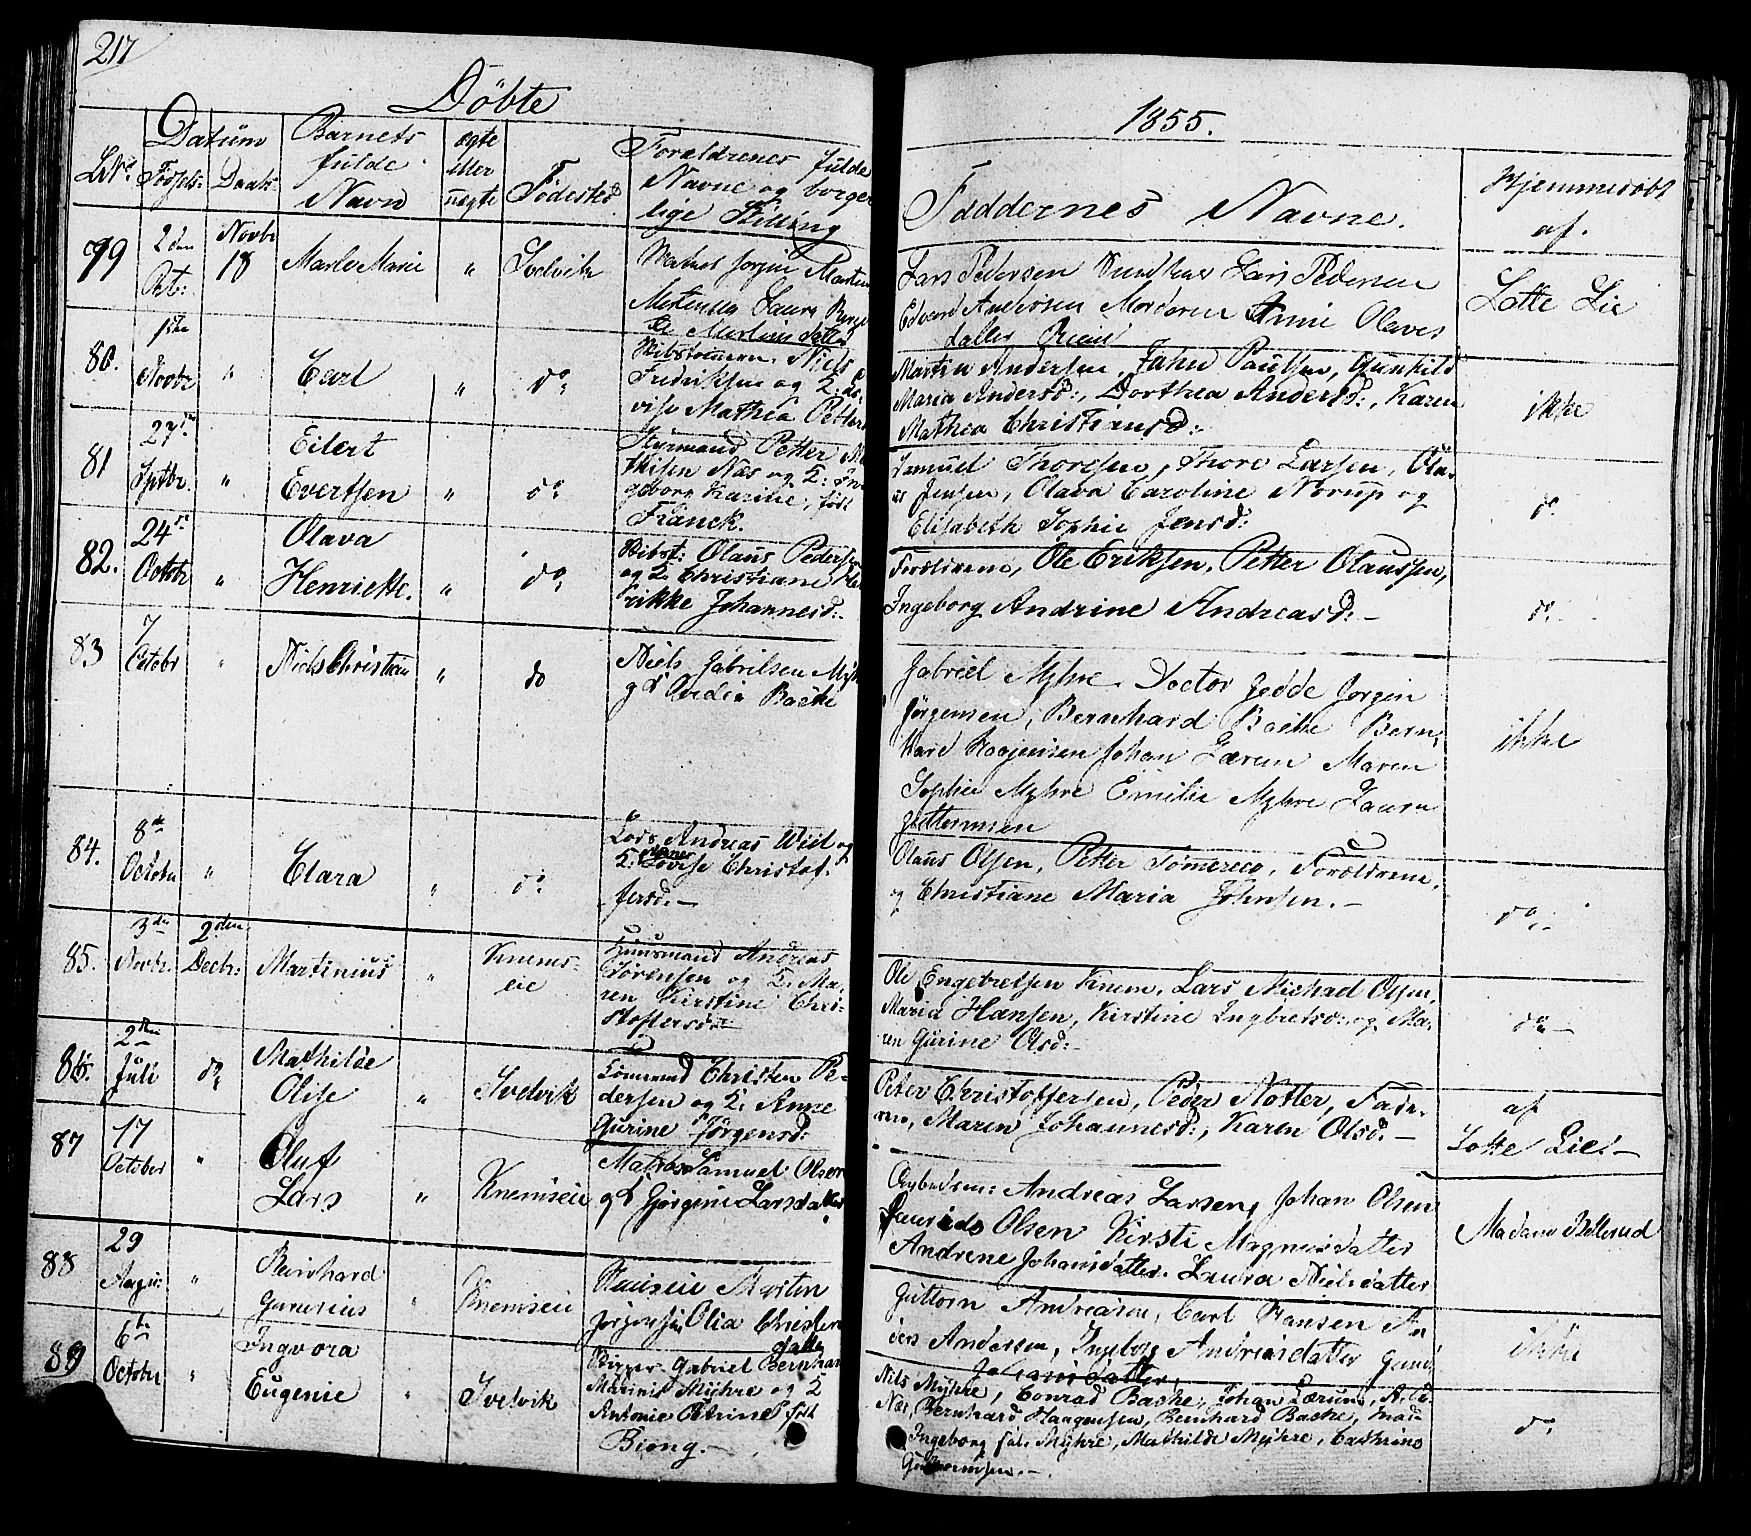 217
Döbte
1855.
Datum
LNo. Fødsls: Daab:
Barnets fulde Navn
ægte eller uægte
Födested
Forældrenes fulde Navne og borgerlige Stilling
Faddernes Navne.
Hjemmedöbt af.
79
2den Oct:
Novbr 18
Marle Marie
"
Svelvik
Jorgin Marten
Laura
Lars Pedersen Lars Pedersen
Edvard Andersen Morderen Anne Olaves
datter
Lotte Lie
80.
1ste Novbr
"
Carl
"
do.
Niels
Fredriksen og K. Lo-
vise Mathea Petters
Martin Andersen, Jahn Paulsen, Gunhild
Maria Andersd:, Dorthea Andersd:, Karen
Mathea Christiansd:
ikke
81
27de Sptbr.
"
Eilert
Evertsen
"
do.
Styrmand Petter M
thisen Næs og K: In-
geborg Karine, født
Franck.
Samuel Thoresen, Thore Larsen, Ola-
us Jensen, Olava Caroline Norup og
Elisabeth Sophie Jensd:
do.
82.
24de Octobr
"
Olava
Henriette.
"
do.
Skibst: Olaus Pedersen
og K. Christiane He
rikke Johannesd:
Forældrene, Ole Eriksen, Petter Olaussen,
Ingeborg Andrine Andreasd: -
do.
83
7 Octobr
"
Niels Christian
"
do
Niels Gabrilsen Myh
g K Ovedia Bache
Gabriel Myhre Doctor Jörgin
Jörgensen, Bernhard Bache Bern,
hard Haagensen Johan Lærum Maren
Sophie Myhre Emilie Myhre Laura
Guttormsen
ikke
84.
8de Octobr
"
Clara
"
do.
Lods Andreas Wiid og
K. Maren Lovise Christof-
fersd. -
Olaus Olsen, Petter Tömeraas, Forældrene,
og Christiane Maria Johnsen. -
do.
85.
3die Novbr.
2den Decbr:
Martinius
"
Knems-
eie
Huusmand Andreas
Sörensen og K. Ma-
ren Kirstine Chri-
stoffersd:
Ole Engebretsen Knem, Lars Michael Olsen,
Maria Hansen, Kirstine Ingbretsd:, og Ma-
ren Gurine Olsd: -
do. -
86.
2den Juli
do.
Mathilde
Olise
"
Svelvik
Tömmermd Christen Pe-
dersen og K. Anne
Gurine Jörgensd:
Peter Christoffersen, Peder Nøtter, Fade-
ren, Maren Johannesd:, Karen Olsd. -
af
Lotte Lie: -
87
17 October
"
Oluf
Lars
"
Knemseie
Matros Samuel Olsen
og K Gjorgine Larsdatter
Andreas Larsen, Johan Olsen
Laurids Olsen Kirsti Magnusdatter
Andrene Johansdatter. Laura Nielsdatter
Madame Bellerud
88
29 Augu:
"
Reinhard
"
Knemseie
Martin
Jorgensen Olia Christens
datter
Guttorm Andreasen, Carl Hansen An
ders Andersen, Ingeborg Andreasdatter Gund
Johansdatter,
ikke
89
6te October
"
Ingvora
Eugenie
"
Svelvik
Gabriel Bernhard
Marinis Myhre og K
Antonie Petrine født
Biong. -
Nils Myhre, Conrad Bache, Johan Lærum, A. C.
Næs, Bernhard Haagensen, Bernhard Bache, Mad:
Ingeborg sal. Myhre, Mathilde Myhre, Cathrine
Guttormsen. -
do.